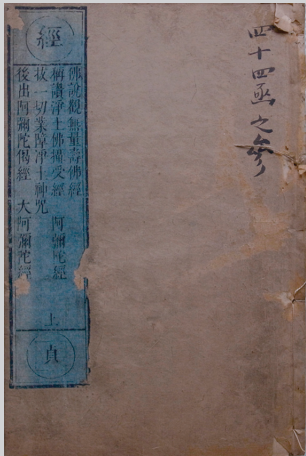 四十四凾之參
經
佛說觀無量壽佛經
稱讚淨土佛攝受經 阿彌陀經
拔一切業障淨土神咒
後出阿彌陀偈經 大阿彌陀經
上
貞